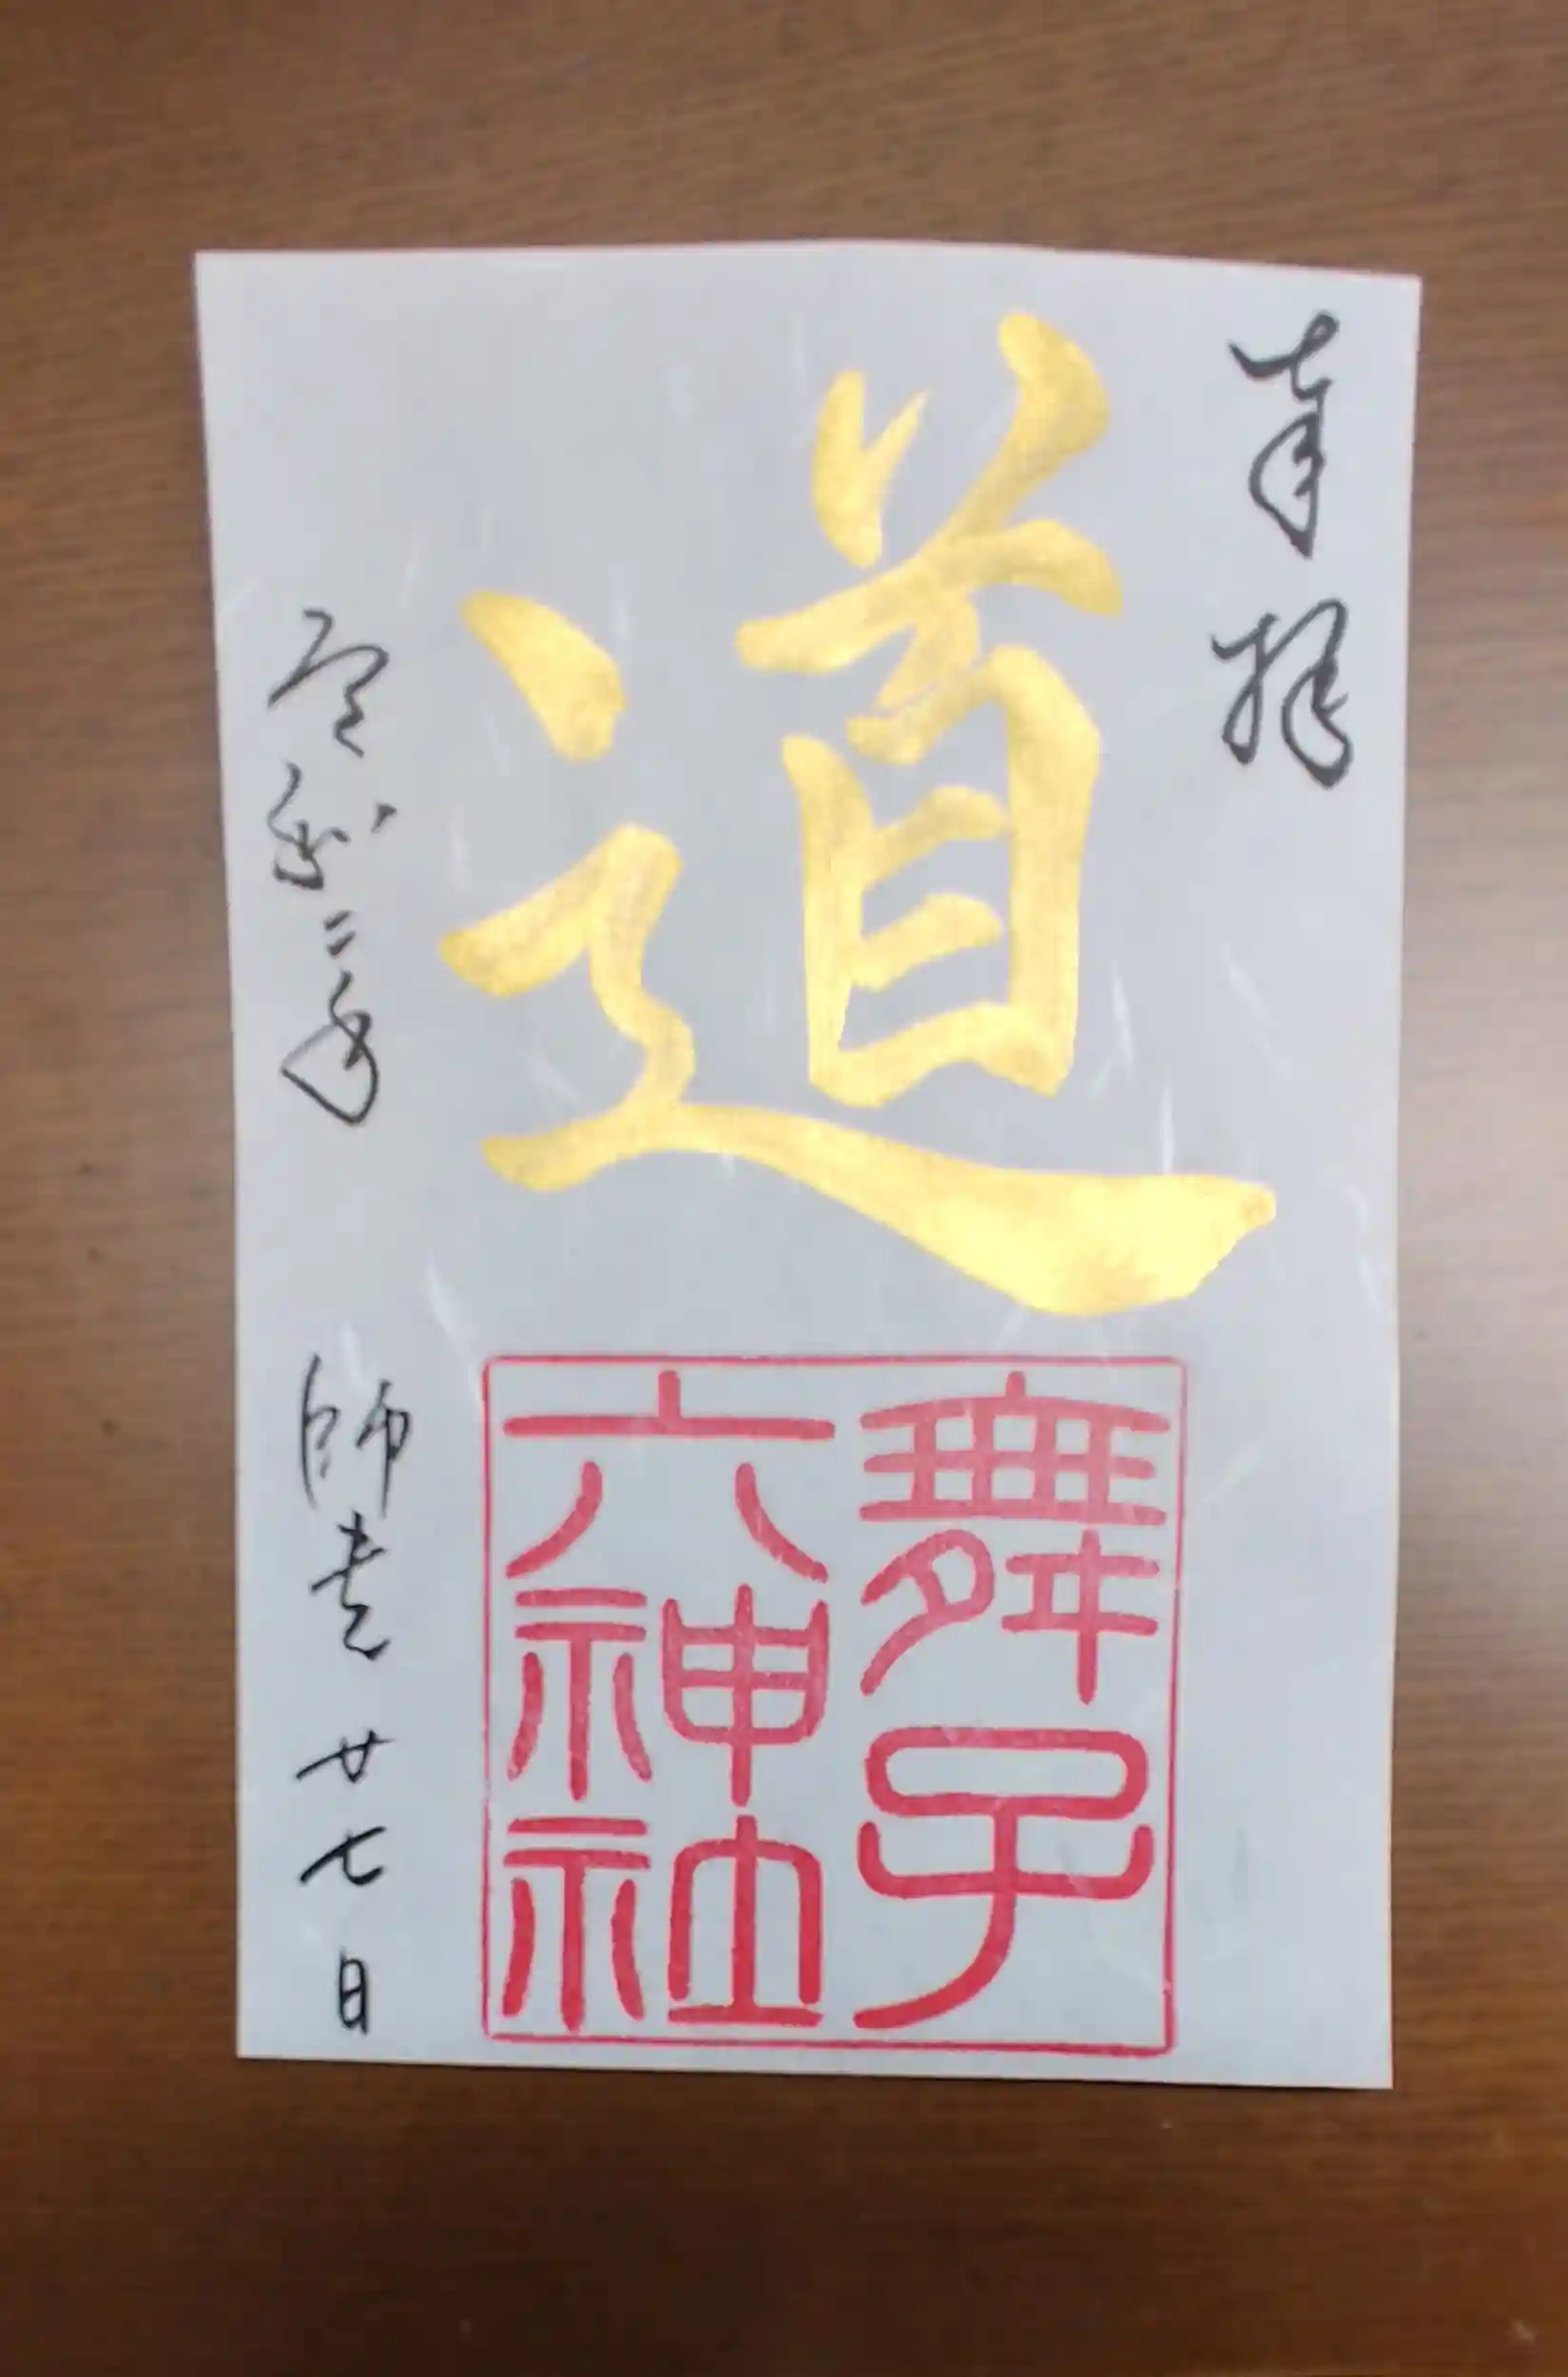 奉拝
道
舞子
六神社
令和二年 師走 廿七日